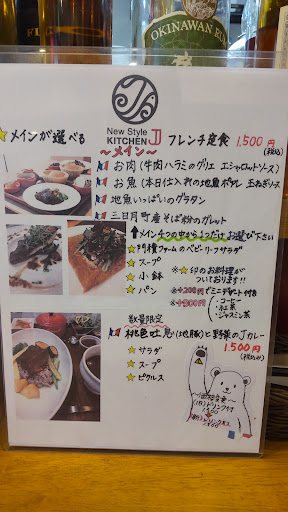 OKINAWAN RU
New Style
KITCHEN
フレンチ定食 1,500円
(税込)
★メインが選べる
～メイン～
お肉(牛肉ハラミのグリエ エシャロットソース)
お魚(本日仕入れの地魚ポワレ 玉ねぎソース
地魚いっぱいのグラタン
三日月町産そば粉のガレット
↑メイン4つの中から1つだけお選び下さい
ファームのベビーリーフサラダ
★スープ
★小鉢
★パン
※★印のお料理が
ついております!!
※+200円でミニデザート付き
※+300円
・コーヒー
・紅茶
・ジャスミン茶
数量限定
(地豚)と野菜のJカレー
1,500円
(税込み)
★サラダ
★スープ
★ピクルス